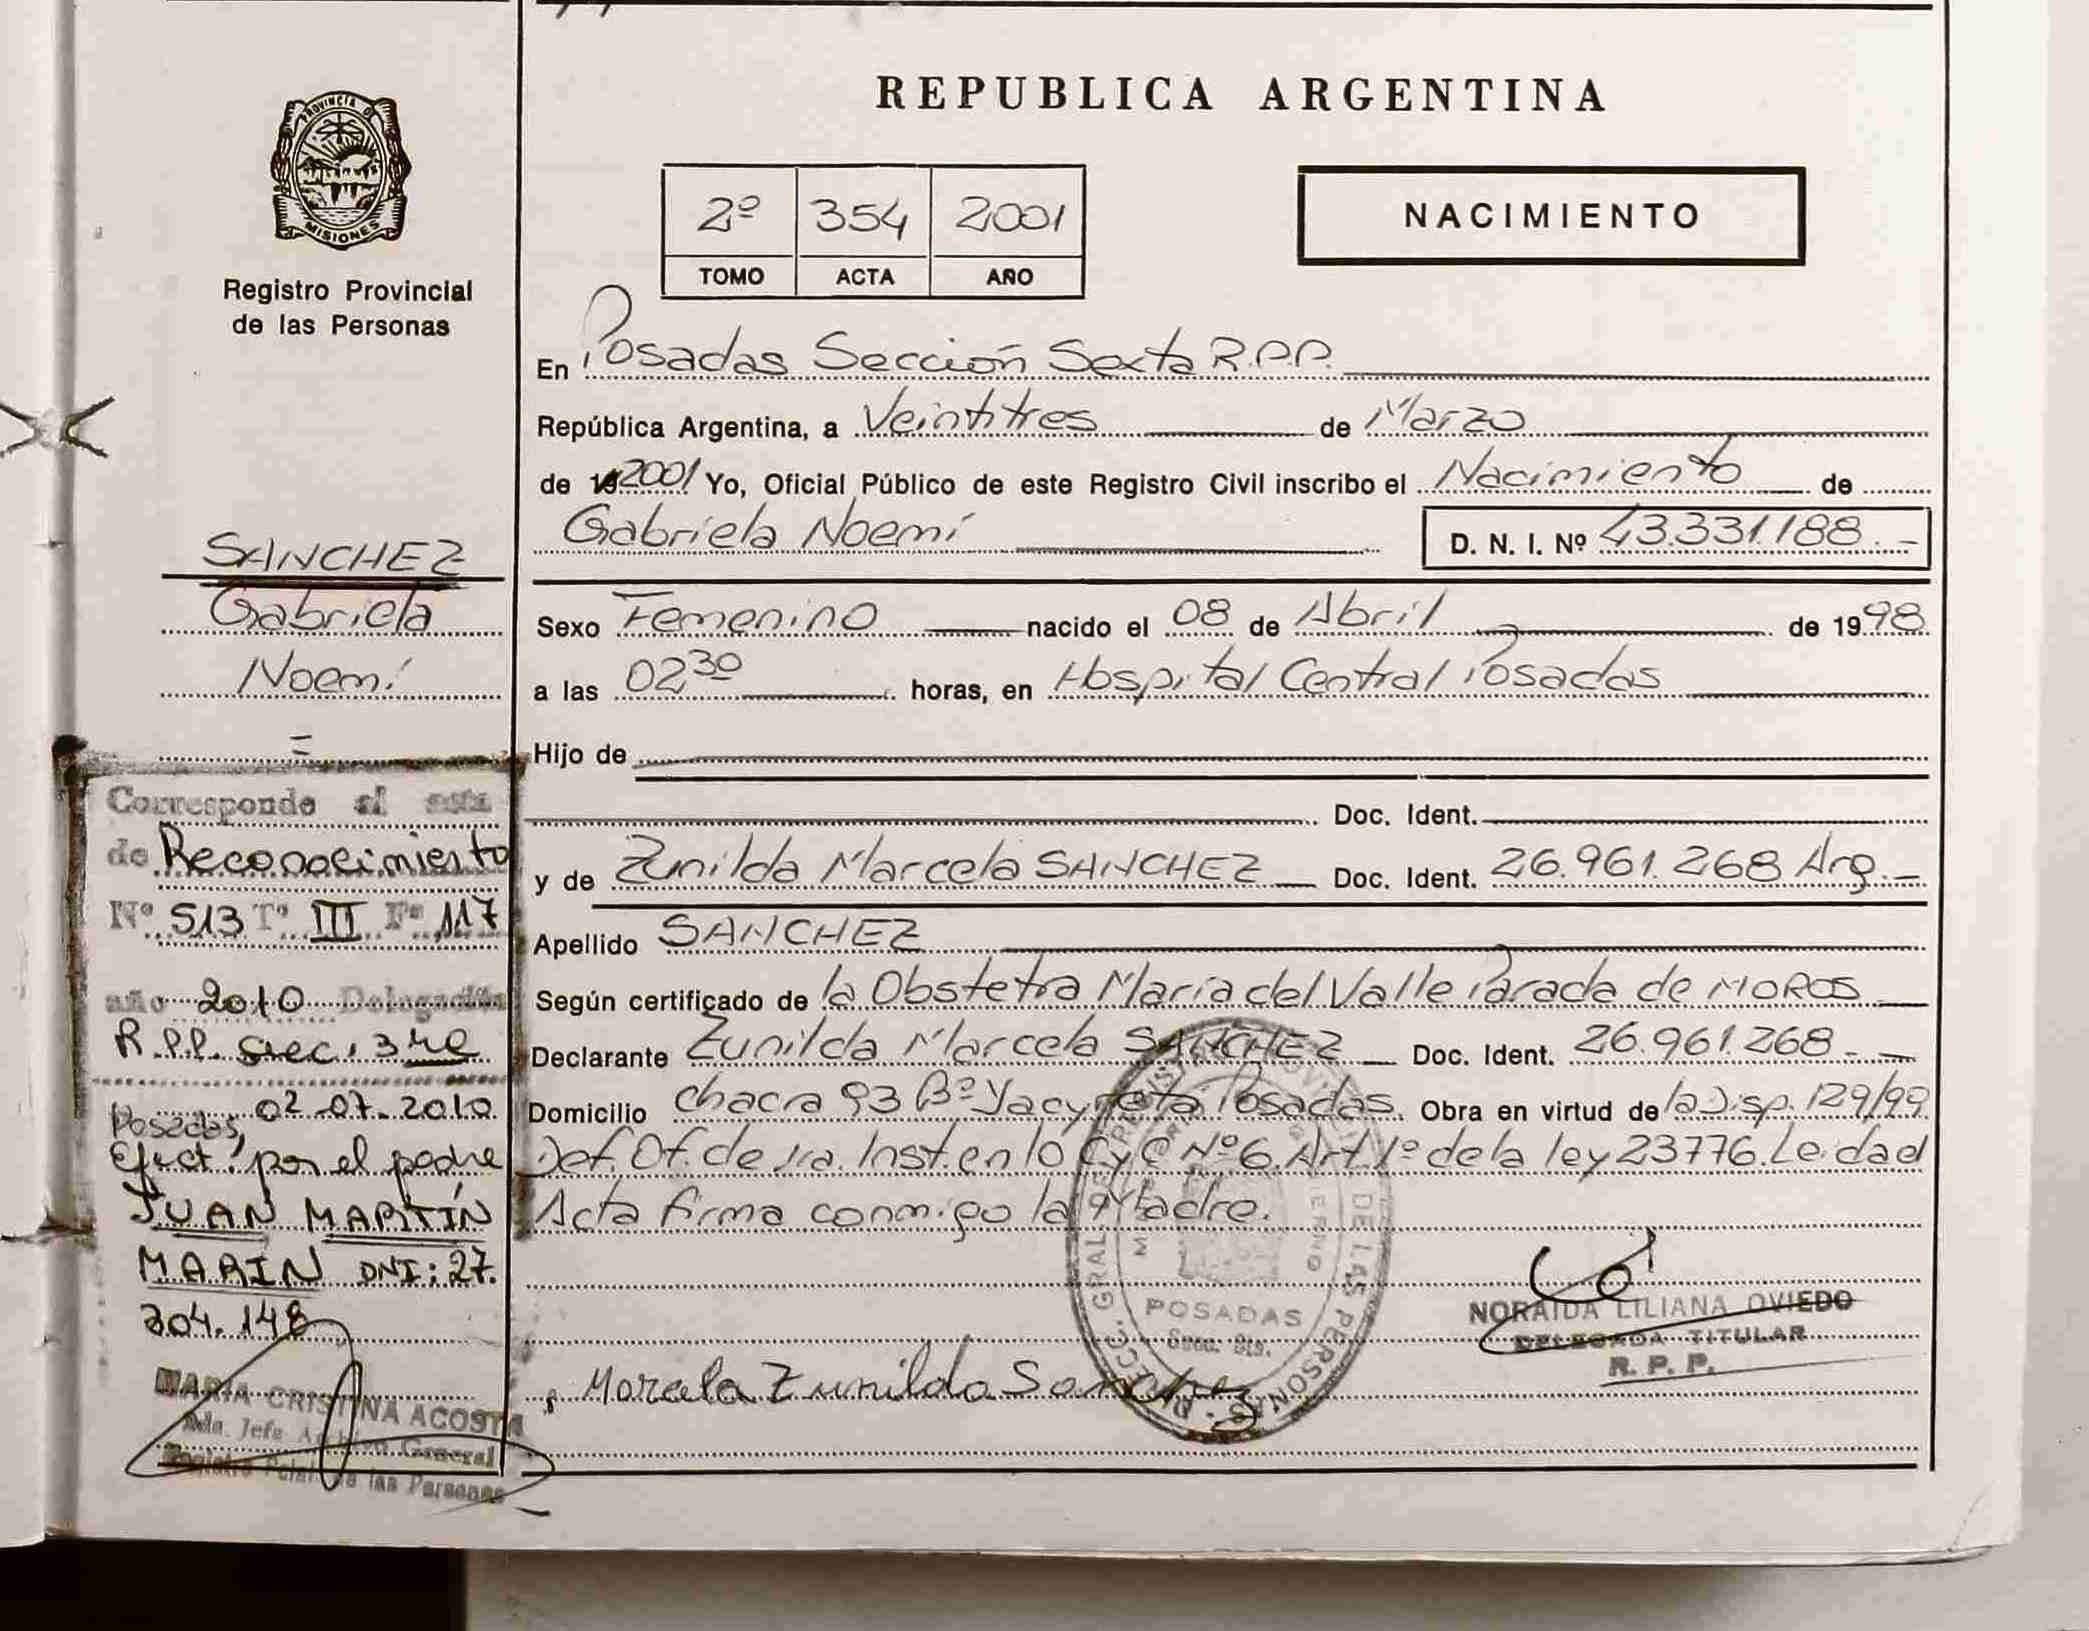 PROVINCIA DE
MISIONES
Registro Provincial
de las Personas
SANCHEZ
Gabriela
Noemí
=
Corresponde al acta
de Reconocimiento
Nº 513 Tº III Fº 117
año 2010 Delegación
R.P.P. Secc. 3ra
Posadas, 02-07-2010
Efect. por el padre
JUAN MARTÍN
MARIN DNI: 27.
304.148
MARIA CRISTINA ACOSTA
Jefe Archivo General
de las Personas
REPUBLICA ARGENTINA
2º 354 2001
TOMO ACTA AÑO
NACIMIENTO
En Posadas Sección Sexta R.P.P.
República Argentina, a Veintitres de Marzo
de 19 2001 Yo, Oficial Público de este Registro Civil inscribo el Nacimiento de
Gabriela Noemí D. N. I. Nº 43.331.188.-
Sexo Femenino nacido el 08 de Abril de 1998
a las 02,30 horas, en Hospital Central Posadas
Hijo de
Doc. Ident.
y de Zunilda Marcela SANCHEZ Doc. Ident. 26.961.268 Arg.-
Apellido SANCHEZ
Según certificado de la Obstetra Maria del Valle Parada de MOROS
Declarante Zunilda Marcela SANCHEZ Doc. Ident. 26.961.268.-
Domicilio Chacra 93 Bº Yacyreta Posadas. Obra en virtud de la Disp. 129/99
Def. Of. de 1ra. Inst. en lo C y C Nº6. Art 1º de la ley 23776. Leida el
Acta firma conmigo la Madre.
POSADAS
DE LAS PERSONAS
NORAIDA LILIANA OVIEDO
DELEGADA TITULAR
R. P. P.
Marcela Zunilda Sanchez